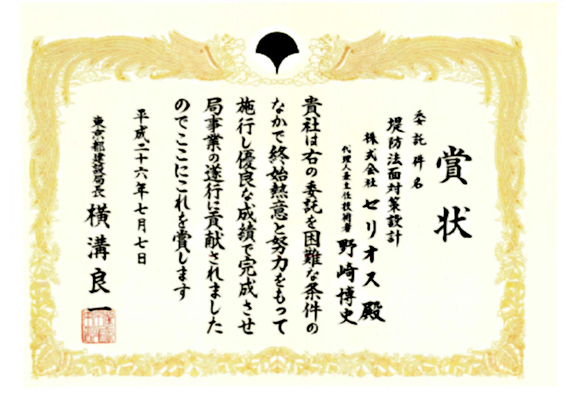 賞状
委託件名
堤防法面対策設計
株式会社 セリオス 殿
代理人兼主任技術者 野崎博史
貴社は右の委託を困難な条件の
なかで終始熱意と努力をもって
施行し優良な成績で完成させ
局事業の遂行に貢献されました
のでここにこれを賞します
平成二十六年七月七日
東京都建設局長 横溝良一